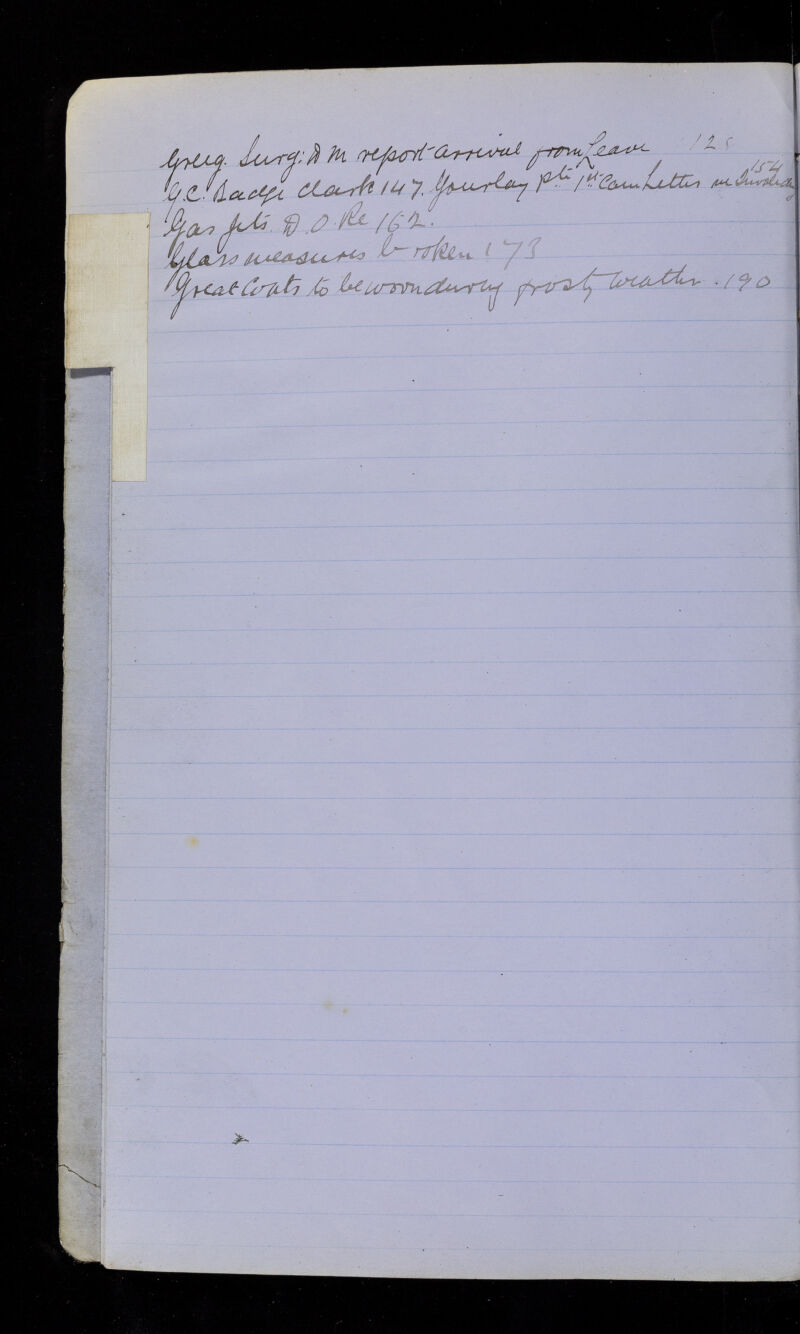 Greig. Surg: D M report arrival from Leave 12
G.C. Badge Clark 147. Gourlay Pte 1st Cam Letter re Invaliding 154
Gas jets D. O. Re 162.
Glass measures broken 173
Great Coats to be worn during frosty weather. 190